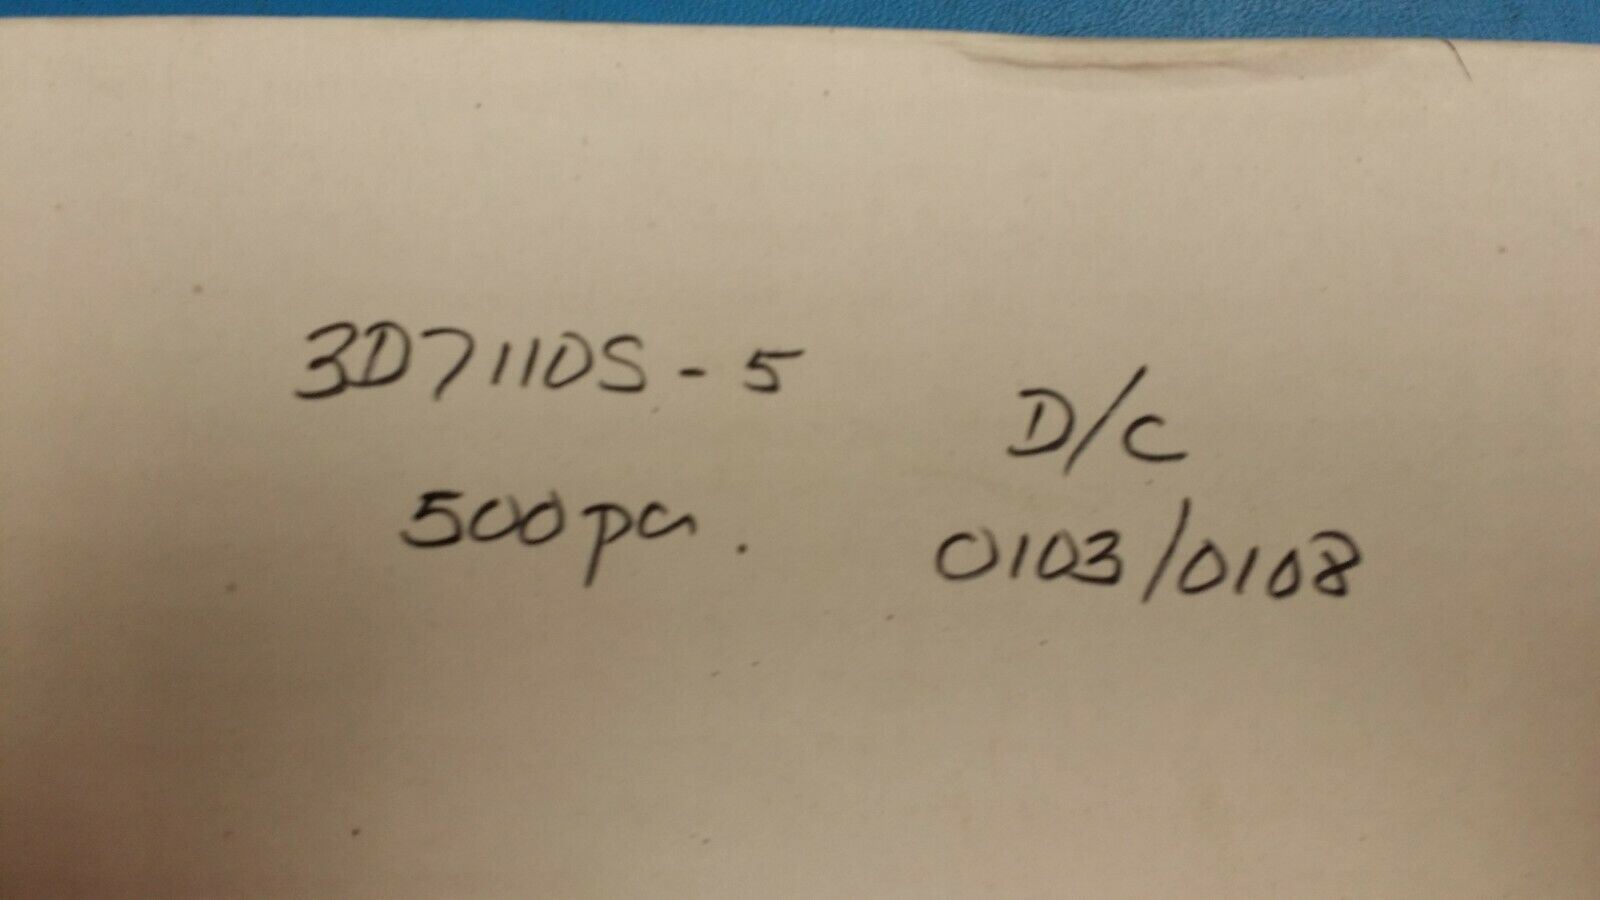 3D7110S-5
500pcs.
D/C
0103/0108